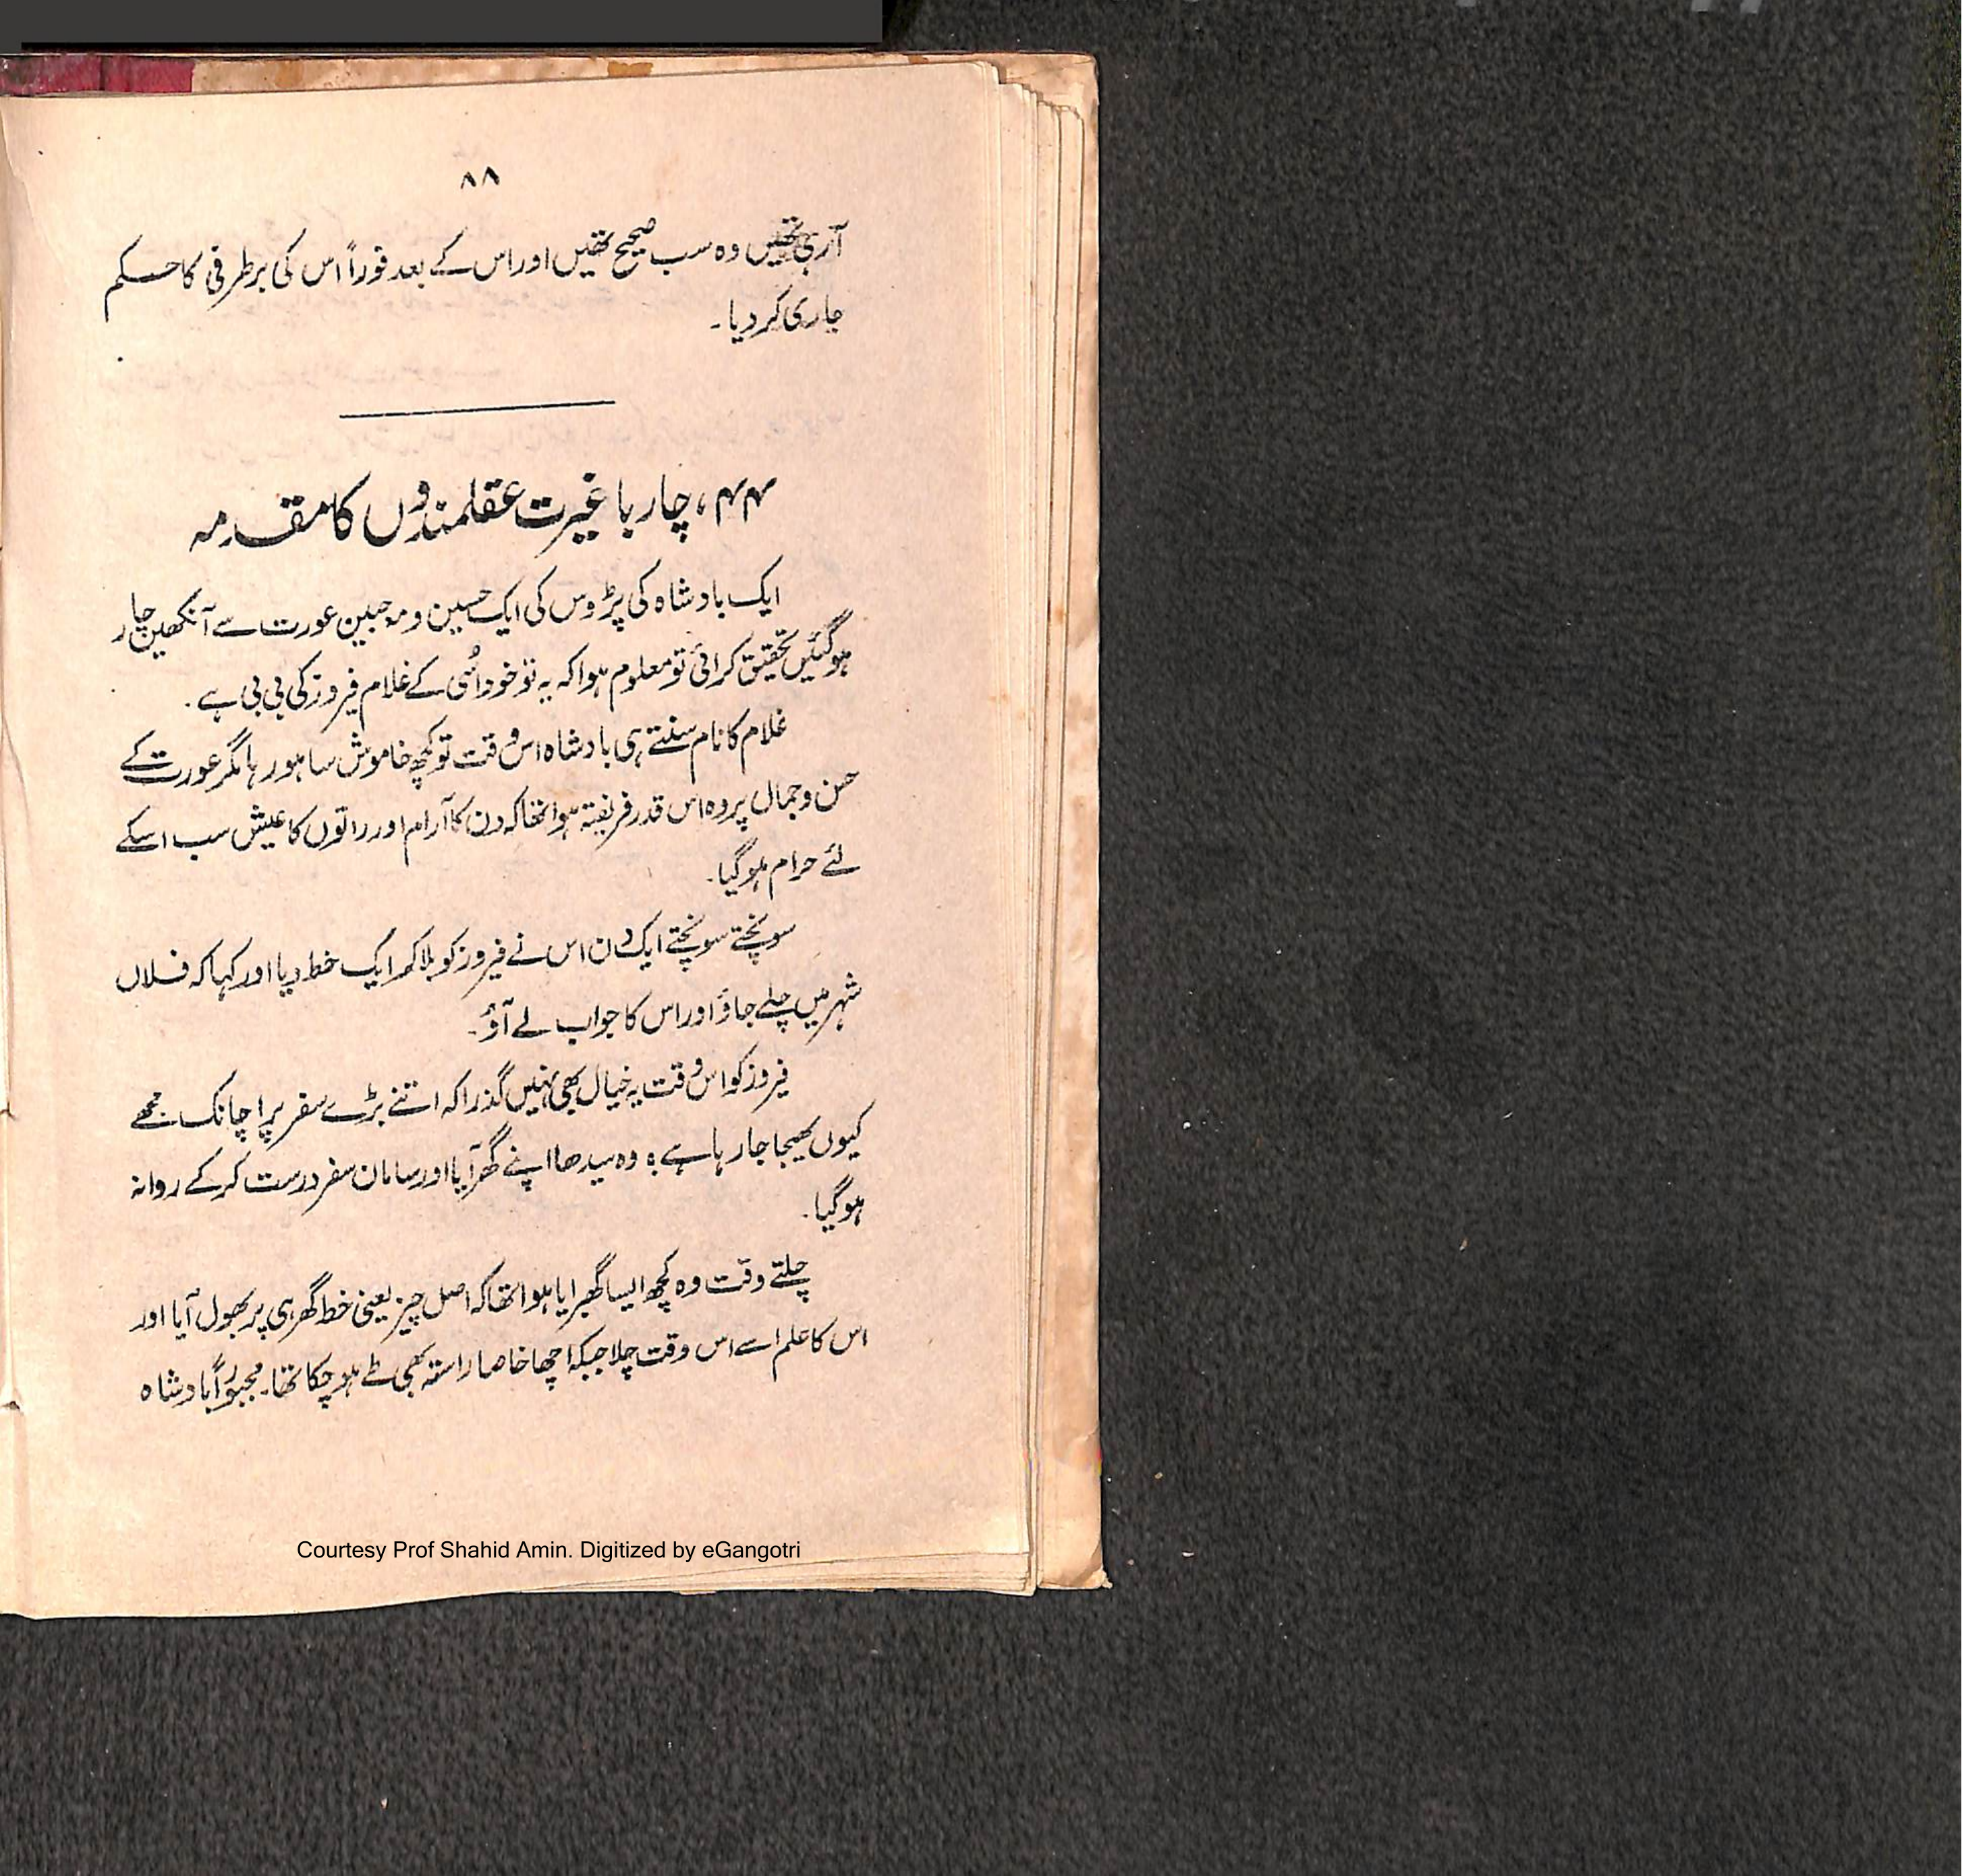 ۸۸
آرہی تھیں وہ سب صحیح تھیں اور اس کے بعد فوراً اس کی برطرفی کا حکم
جاری کر دیا۔
۴۴، چار با غیرت عقلمندوں کا مقدمہ
ایک بادشاہ کی پڑوس کی ایک حسین و مہ جبین عورت سے آنکھیں چار
ہو گئیں تحقیق کرائی تو معلوم ہوا کہ یہ تو خود اُسی کے غلام فیروز کی بی بی ہے۔
غلام کا نام سنتے ہی بادشاہ اس وقت تو کچھ خاموش سا ہو رہا مگر عورت کے
حسن و جمال پر وہ اس قدر فریفتہ ہوا تھا کہ دن کا آرام اور راتوں کا عیش سب اسکے
لئے حرام ہو گیا۔
سوپنچتے سوپنچتے ایک دن اس نے فیروز کو بلا کر ایک خط دیا اور کہا کہ فلاں
شہر میں چلے جاؤ اور اس کا جواب لے آؤ۔
فیروز کو اس وقت یہ خیال بھی نہیں گذرا کہ اتنے بڑے سفر پر اچانک مجھے
کیوں بھیجا جا رہا ہے؟ وہ سیدھا اپنے گھر آیا اور سامان سفر درست کر کے روانہ
ہو گیا۔
چلتے وقت وہ کچھ ایسا گھبرایا ہوا تھا کہ اصل چیز یعنی خط گھر ہی پر بھول آیا اور
اس کا علم اسے اس وقت چلا جبکہ اچھا خاصا راستہ بھی طے ہو چکا تھا۔ مجبوراً بادشاہ
Courtesy Prof Shahid Amin. Digitized by eGangotri